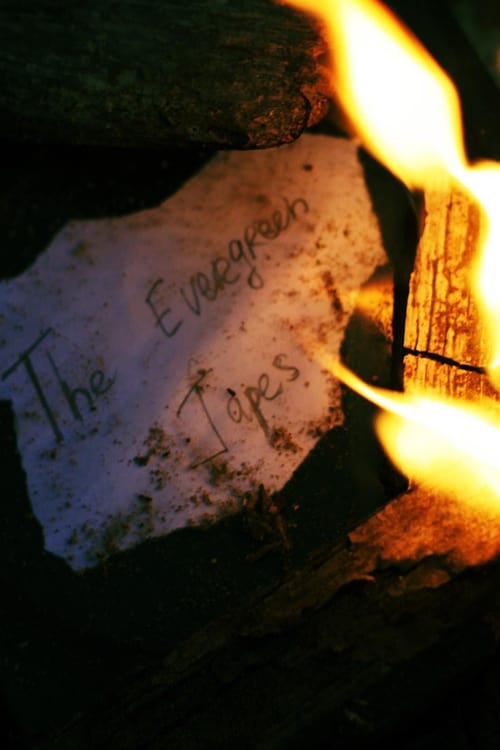 The Evergreen
Tapes